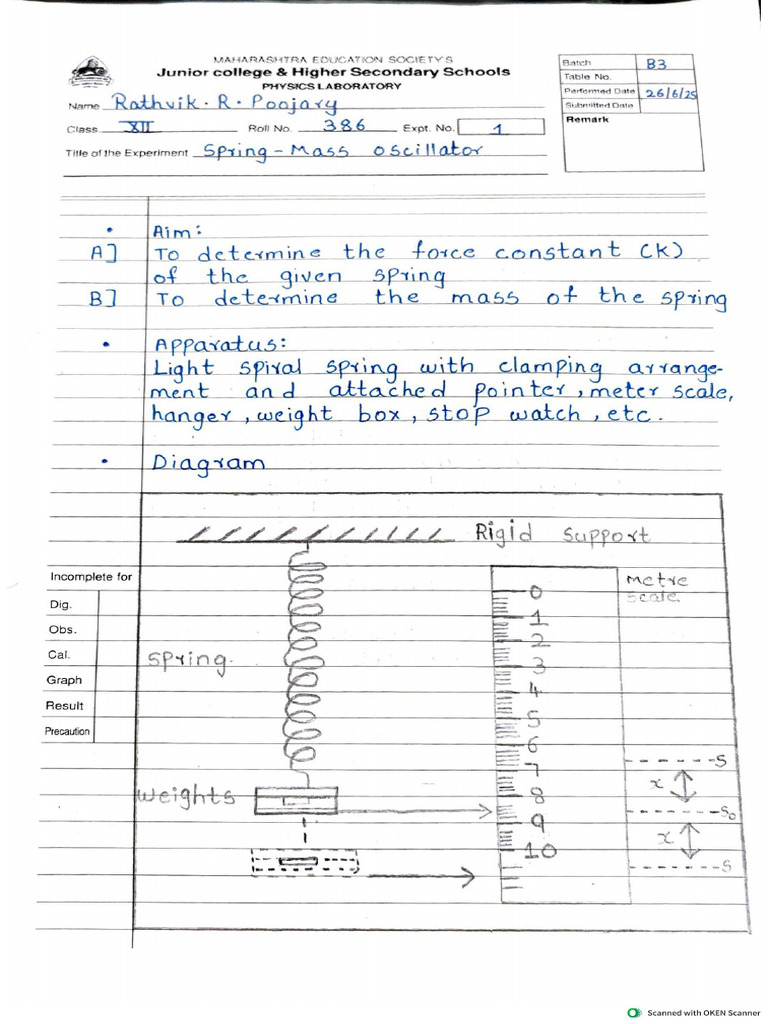 MAHARASHTRA EDUCATION SOCIETY'S
Junior college & Higher Secondary Schools
PHYSICS LABORATORY
Name Rathvik. R. Poojary
Class XII Roll No. 386 Expt. No. 1
Title of the Experiment Spring - Mass oscillator
Batch B3
Table No.
Performed Date 26/6/25
Submitted Date
Remark
• Aim:
A] To determine the force constant (K)
of the given spring
B] To determine the mass of the spring
• Apparatus:
Light spiral spring with clamping arrange-
ment and attached pointer, meter scale,
hanger, weight box, stop watch, etc.
• Diagram
Rigid support
Metre
scale
Incomplete for
Dig.
Obs.
Cal.
Graph
Result
Precaution
spring.
weights
0
1
2
3
4
5
6
7
8
9
10
S
x
S₀
x
S
Scanned with OKEN Scanner